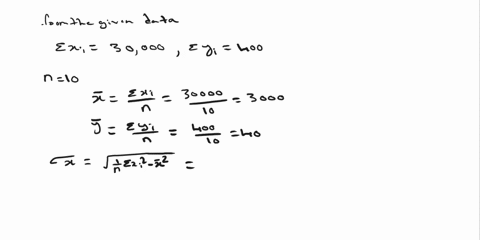 from the given data
Σxi = 30,000 , Σyi = 400
n=10
x̄ = Σxi/n = 30000/10 = 3000
ȳ = Σyi/n = 400/10 = 40
σx = √(1/n Σxi² - x̄²) =